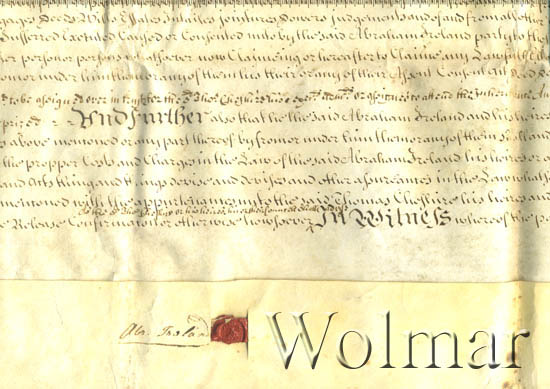 gages Deeds Wills Estates Intailes Joyntures Dowers Judgements and of and from all other
Suffered Executed Caused or Consented unto by the said Abraham Ireland party to the
her person or persons whatsoever now Claimeing or hereafter to Claime any Lawfull
from or under him them or any of them his their or any of their Assent Consent
to be assigned over in trust for the said Thos Cheshire his exors admrs or assignes to attend the Inheritance
prized And Further also that he the said Abraham Ireland and his heires
above mentioned or any part thereof by from or under him them or any of them shall and
the propper Costs and Charges in the Law of the said Abraham Ireland his heires or
and Acts thing and things devise and devises and other assureances in the Law whatso
mentioned with the appurtenances unto the said Thomas Cheshire his heires and
Release Confirmacion or otherwise howsoever In Witness whereof the
Abr. Ireland
Wolmar